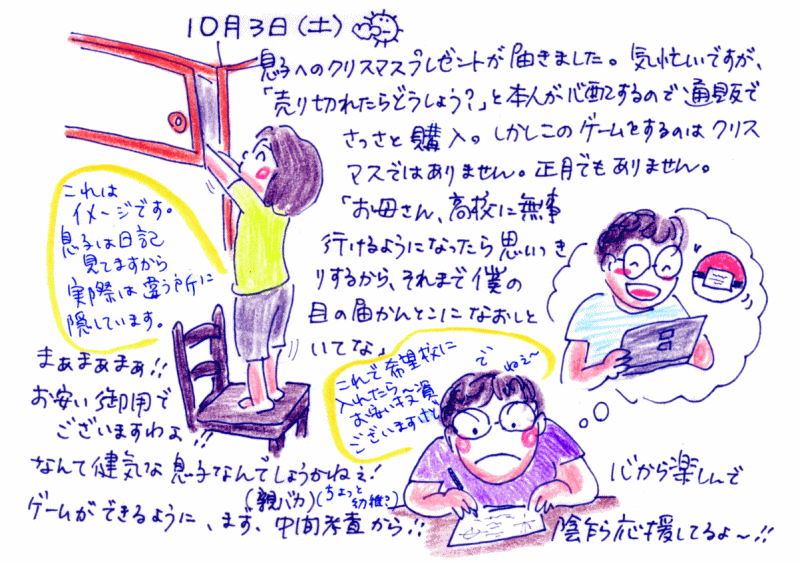 10月3日(土)
息子へのクリスマスプレゼントが届きました。気忙しいですが、
「売り切れたらどうしよう?」と本人が心配するので通販で
さっさと購入。しかしこのゲームをするのはクリス
マスではありません。正月でもありません。
「お母さん、高校に無事
行けるようになったら思いっき
りするから、それまで僕の
目の届かんとこになおしと
いてな」
これは
イメージです。
息子は日記
見てますから
実際は違う所に
隠しています。
まぁまぁまぁ!!
お安い御用で
ございますわよ!!
なんて健気な息子なんでしょうかねぇ!
(親バカ)(ちょっと幼稚?)
ゲームができるように、まず、中間考査から!!
これで希望校に
入れたら〜
お安い投資
でございますけどねぇ〜
心から楽しんで
陰乍ら応援してるよ〜!!